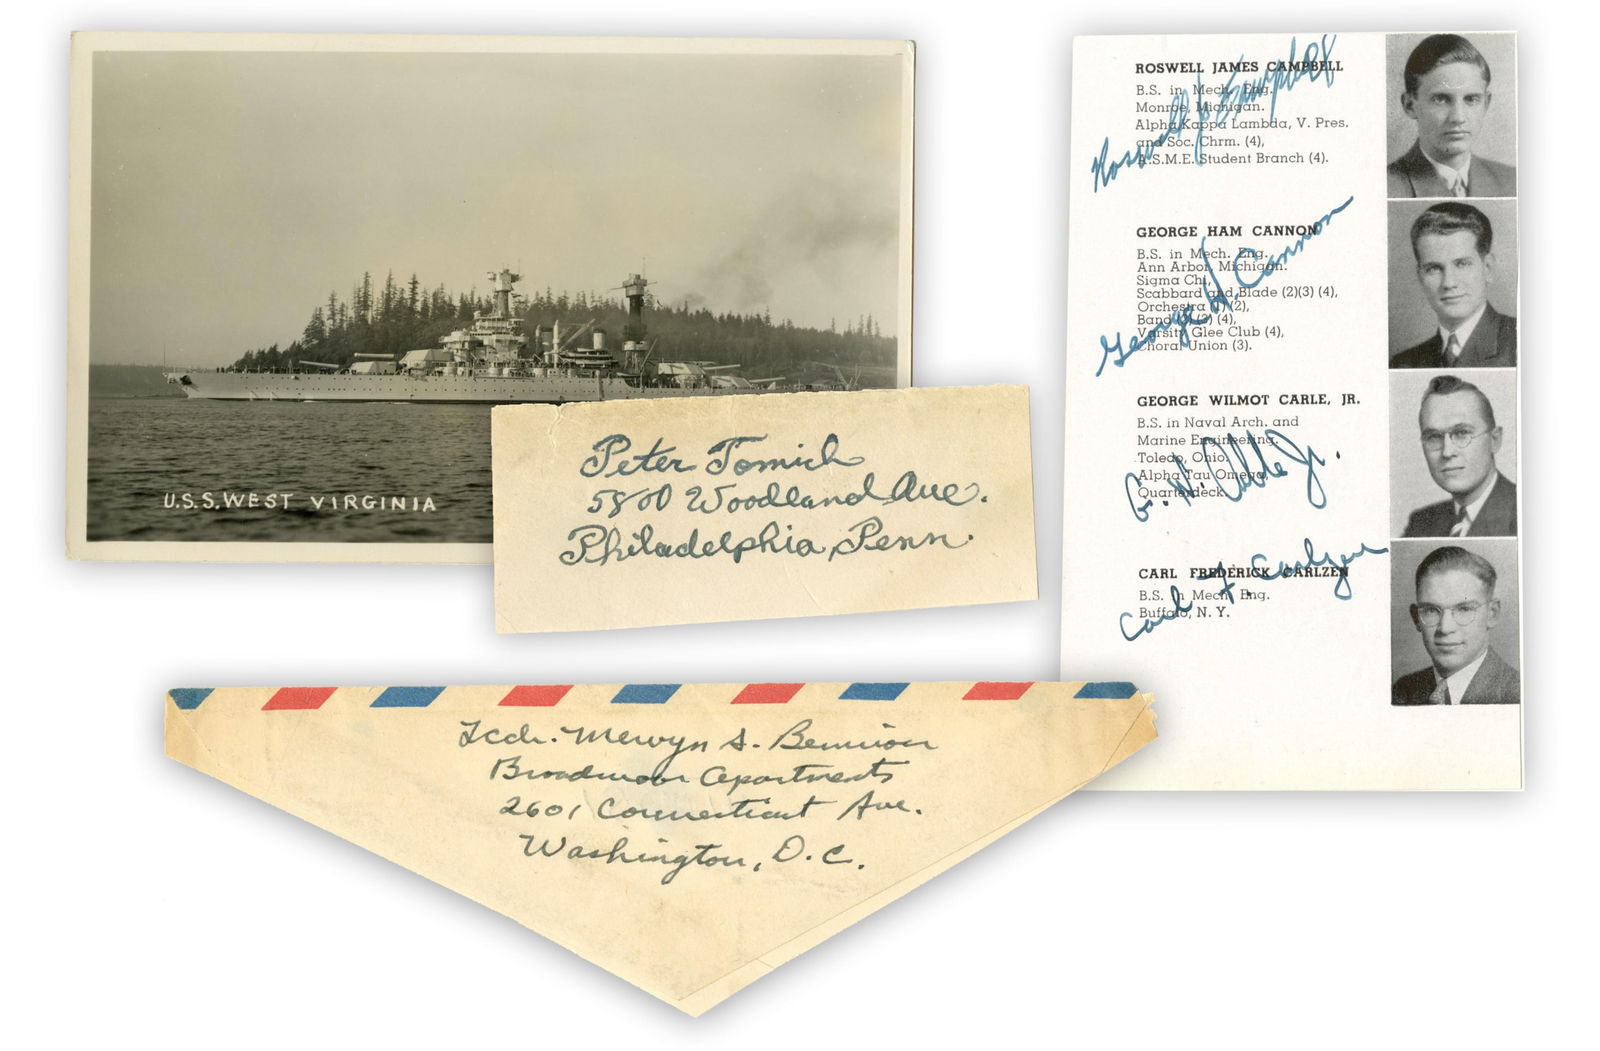 U.S.S. WEST VIRGINIA
Peter Tomich
5800 Woodland Ave.
Philadelphia, Penn.
Lcdr. Mervyn S. Bennion
Broadmoor Apartments
2601 Connecticut Ave.
Washington, D.C.
ROSWELL JAMES CAMPBELL
B.S. in Mech. Eng.
Monroe, Michigan.
Alpha Kappa Lambda, V. Pres.
and Soc. Chrm. (4),
A.S.M.E. Student Branch (4).
Roswell J Campbell
GEORGE HAM CANNON
B.S. in Mech. Eng.
Ann Arbor, Michigan.
Sigma Chi,
Scabbard and Blade (2)(3) (4),
Orchestra (1) (2),
Band (2) (4),
Varsity Glee Club (4),
Choral Union (3).
George H. Cannon
GEORGE WILMOT CARLE, JR.
B.S. in Naval Arch. and
Marine Engineering.
Toledo, Ohio.
Alpha Tau Omega,
Quarterdeck.
G. W. Jr.
CARL FREDERICK CARLZEN
B.S. in Mech. Eng.
Buffalo, N. Y.
Carl F. Carlzen